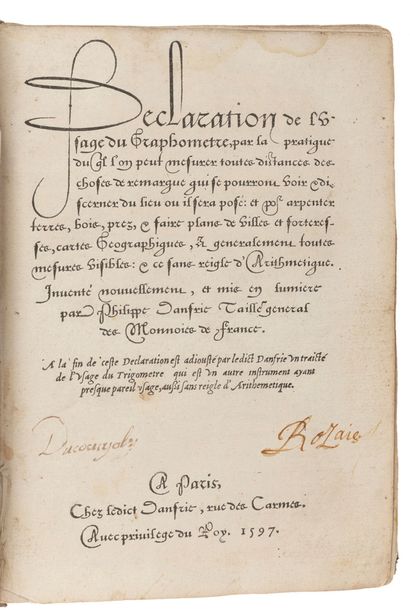 Declaration de l'V-
sage du Graphometre, par la pratique
du q̃l l'on peut mesurer toutes distances des
choses de remarque qui se pourront voir & dis
cerner du lieu ou il sera posé: et po2 arpenter
terres, bois, prez, & faire plans de villes et forteres-
ses, cartes Geographiques, & generalement toutes
mesures visibles: & ce sans reigle d'Arithmetique.
Inuenté nouuellement, et mis en lumiere
par Philippe Danfrie Tailleʳ general
des Monnoies de France.
A la fin de ceste Declaration est adiousté par ledict Danfrie vn traicté
de l'Vsage du Trigometre qui est vn autre instrument ayant
presque pareil vsage, aussi sans reigle d'Arithemetique.
Rozaie
A Paris,
Chez ledict Danfrie, rue des Carmes.
Auec priuilege du Roy. 1597.